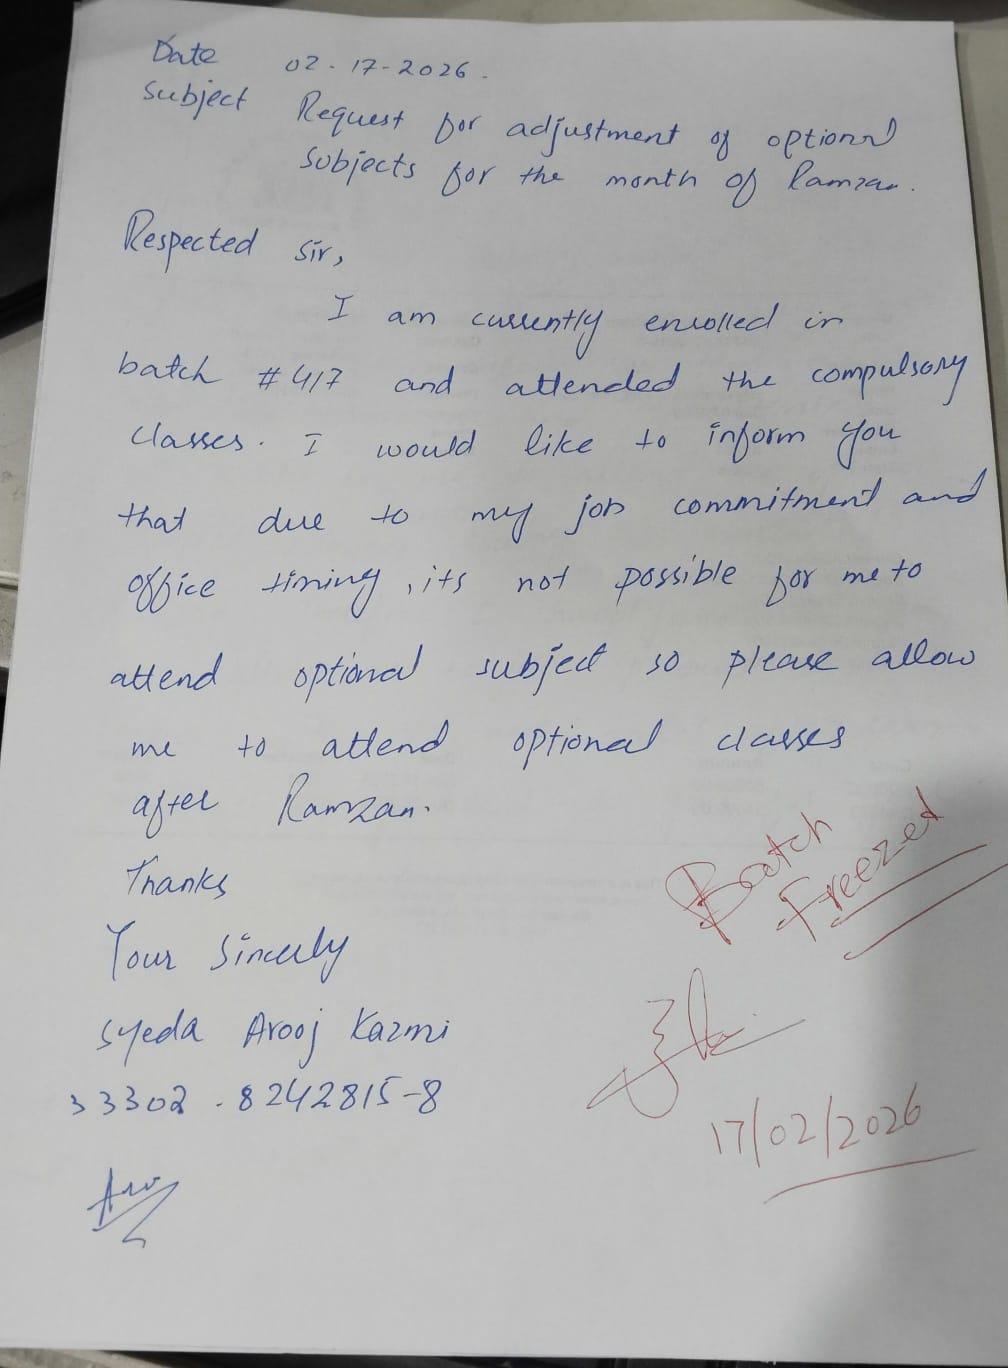 Date 02-17-2026.
Subject Request for adjustment of optional
subjects for the month of Ramzan.
Respected Sir,
I am currently enrolled in
batch #417 and attended the compulsory
classes. I would like to inform you
that due to my job commitment and
office timing, its not possible for me to
attend optional subject so please allow
me to attend optional classes
after Ramzan.
Thanks
Your Sincerly
Syeda Arooj Kazmi
33302-8242815-8
Batch
Freezed
17/02/2026